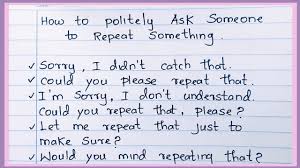 How to politely Ask Someone
to Repeat Something.
✓ Sorry, I didn't catch that.
✓ Could you please repeat that.
✓ I'm Sorry, I don't understand.
Could you repeat that, please?
✓ Let me repeat that just to
make Sure?
✓ Would you mind repeating that?